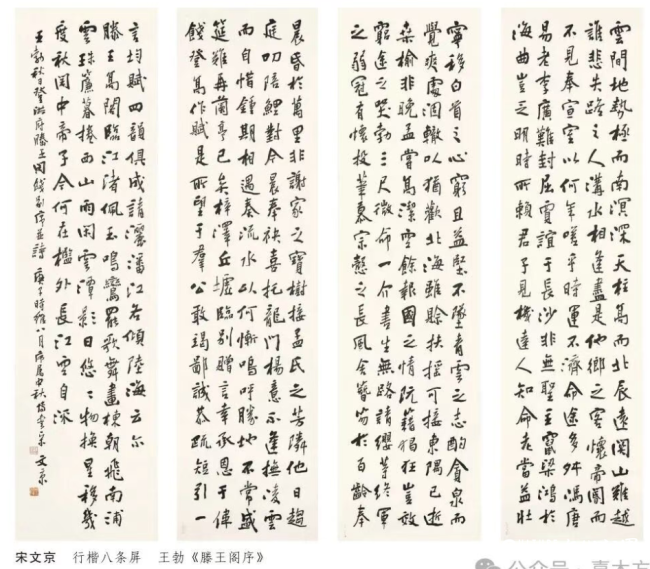 雲間地勢極而南溟深天柱高而北辰遠関山難越
誰悲失路之人溝水相逢盡是他鄉之客懷帝閽而
不見奉宣室以何年嗟乎時運不濟命途多舛馮唐
易老李廣難封屈賈誼于長沙非無聖主竄梁鴻於
海曲豈乏明時所賴君子見機達人知命老當益壯
寧移白首之心窮且益堅不墜青雲之志酌貪泉而
覺爽處涸轍以猶歡北海雖賒扶搖可接東隅已逝
桑榆非晚孟嘗高潔空餘報國之情阮籍猖狂豈效
窮途之哭勃三尺微命一介書生無路請纓等終軍
之弱冠有懷投筆慕宗慤之長風舍簪笏於百齡奉
晨昏於萬里非謝家之寶樹接孟氏之芳隣他日趨
庭叨陪鯉對今晨奉袂喜托龍門楊意不逢撫凌雲
而自惜鍾期相遇奏流水以何慚嗚呼勝地不常盛
筵難再蘭亭已矣梓澤丘墟臨別贈言幸承恩于偉
餞登高作賦是所望于羣公敢竭鄙誠恭疏短引一
言均賦四韻俱成請灑潘江各傾陸海云尔
滕王高閣臨江渚佩玉鳴鸞罷歌舞畫棟朝飛南浦
雲珠簾暮捲西山雨閑雲潭影日悠〻物換星移幾
度秋閣中帝子今何在檻外長江空自流
王勃秋日登洪府滕王閣餞別序並詩 庚子時維八月序屬中秋 文京
宋文京 行楷八条屏 王勃《滕王阁序》
公众号